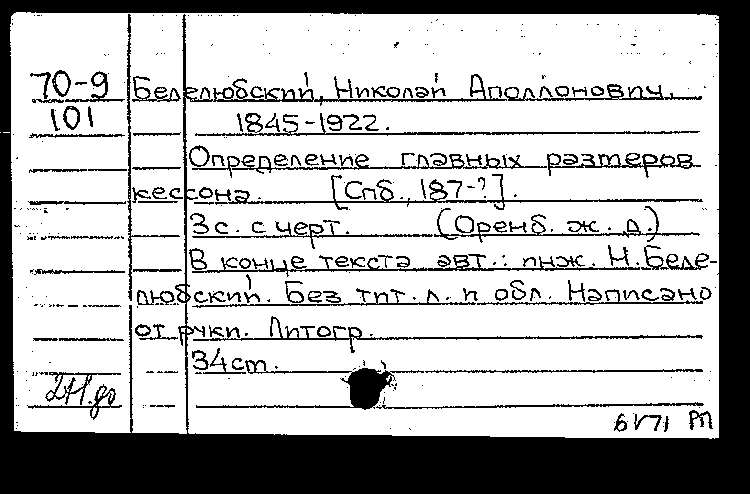 70-9 Белелюбский, Николай Аполлонович.
101 1845-1922.
Определение главных размеров
кессона. [Спб., 187-?].
3 с. с черт. (Оренб. ж. д.)
В конце текста авт.: инж. Н. Беле-
любский. Без тит. л. и обл. Написано
от руки. Литогр.
34 cm.
6 V 71